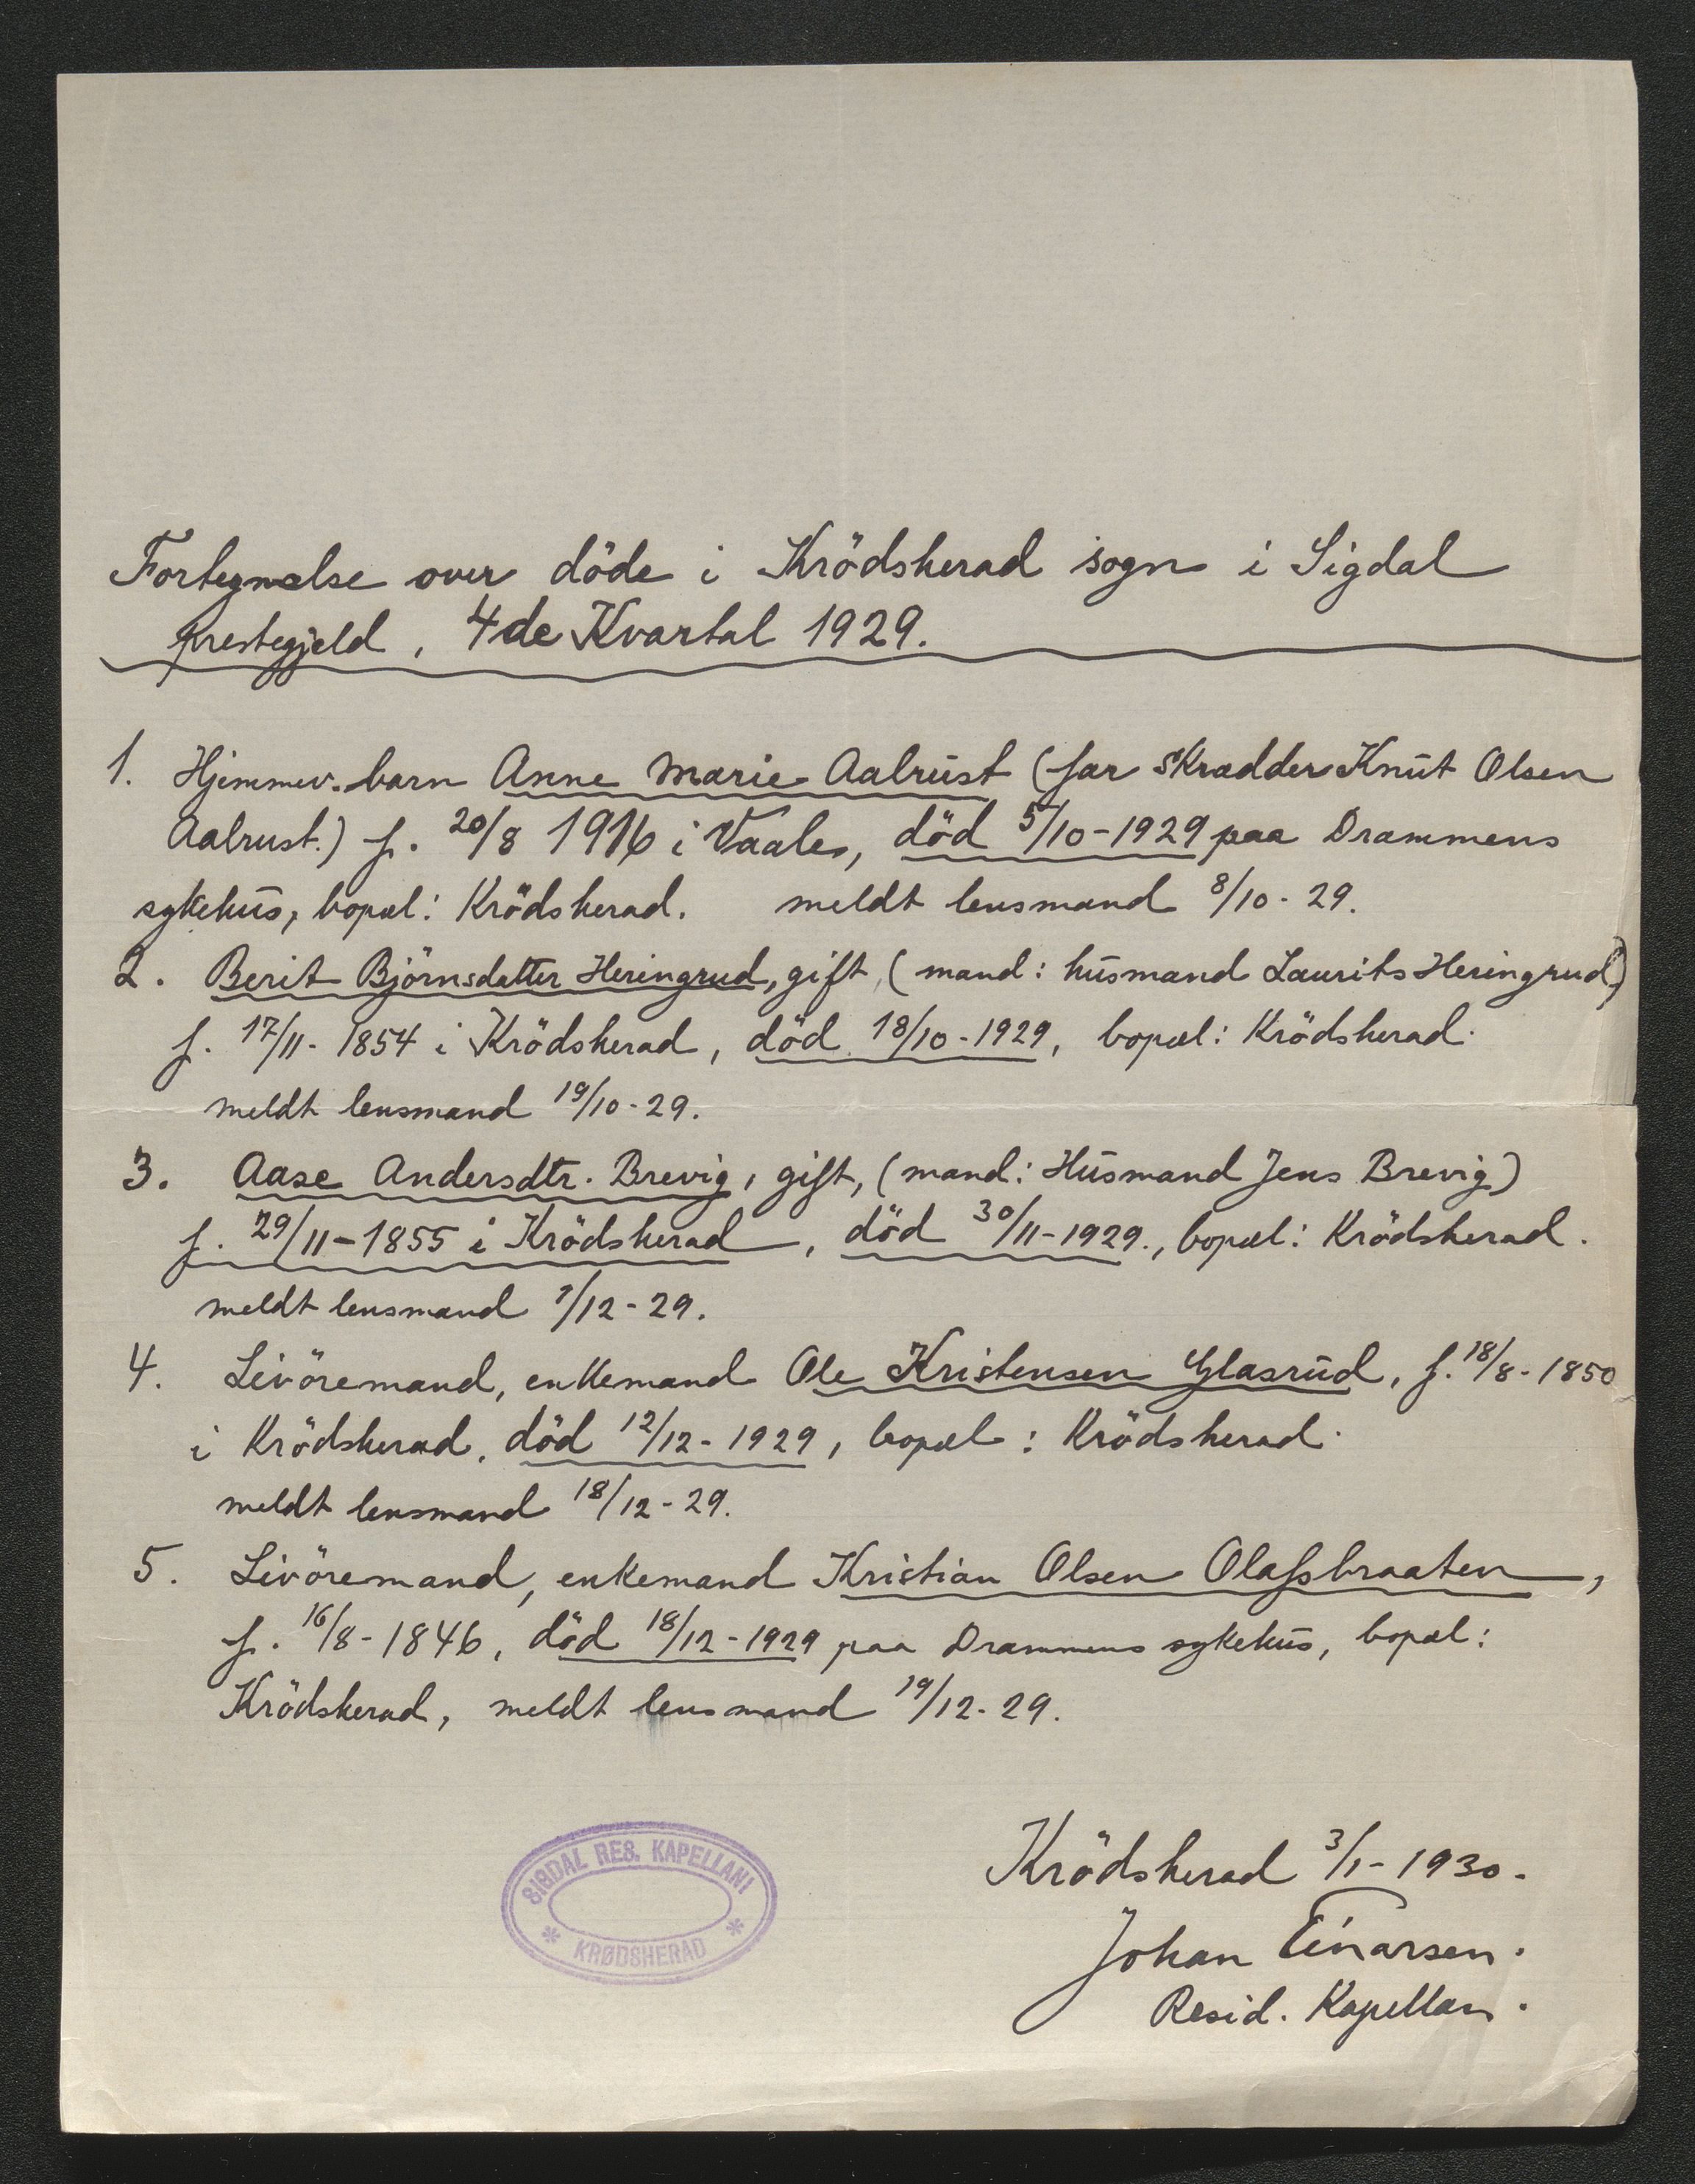 Fortegnelse over döde i Krödsherad sogn i Sigdal
prestegjeld, 4de Kvartal 1929.
1. Hjemmev. barn Anne Marie Aalrust (far skrædder Knut Olsen
Aalrust.) f. 20/8 1916 i Vaale, död 5/10-1929 paa Drammens
sykehus, bopæl: Krödsherad. meldt lensmand 8/10-29.
2. Berit Björnsdatter Heringrud, gift, (mand: husmand Laurits Heringrud)
f. 17/11-1854 i Krödsherad, död 18/10-1929, bopæl: Krödsherad.
meldt lensmand 19/10-29.
3. Aase Andersdtr. Brevig, gift, (mand: Husmand Jens Brevig)
f. 29/11-1855 i Krödsherad, död 30/11-1929., bopæl: Krödsherad.
meldt lensmand /12-29.
4. Livöremand, enkemand Ole Kristensen Glasrud, f. 18/8-1850
i Krödsherad, död 12/12-1929, bopæl: Krödsherad.
meldt lensmand 18/12-29.
5. Livöremand, enkemand Kristian Olsen Olafsbraaten,
f. 16/8-1846, död 18/12-1929 paa Drammens sykehus, bopæl:
Krödsherad, meldt lensmand 19/12-29.
SIGDAL RES. KAPELLANI
* KRØDSHERAD *
Krödsherad 3/1-1930.
Johan Einarsen.
Resid. Kapellan.